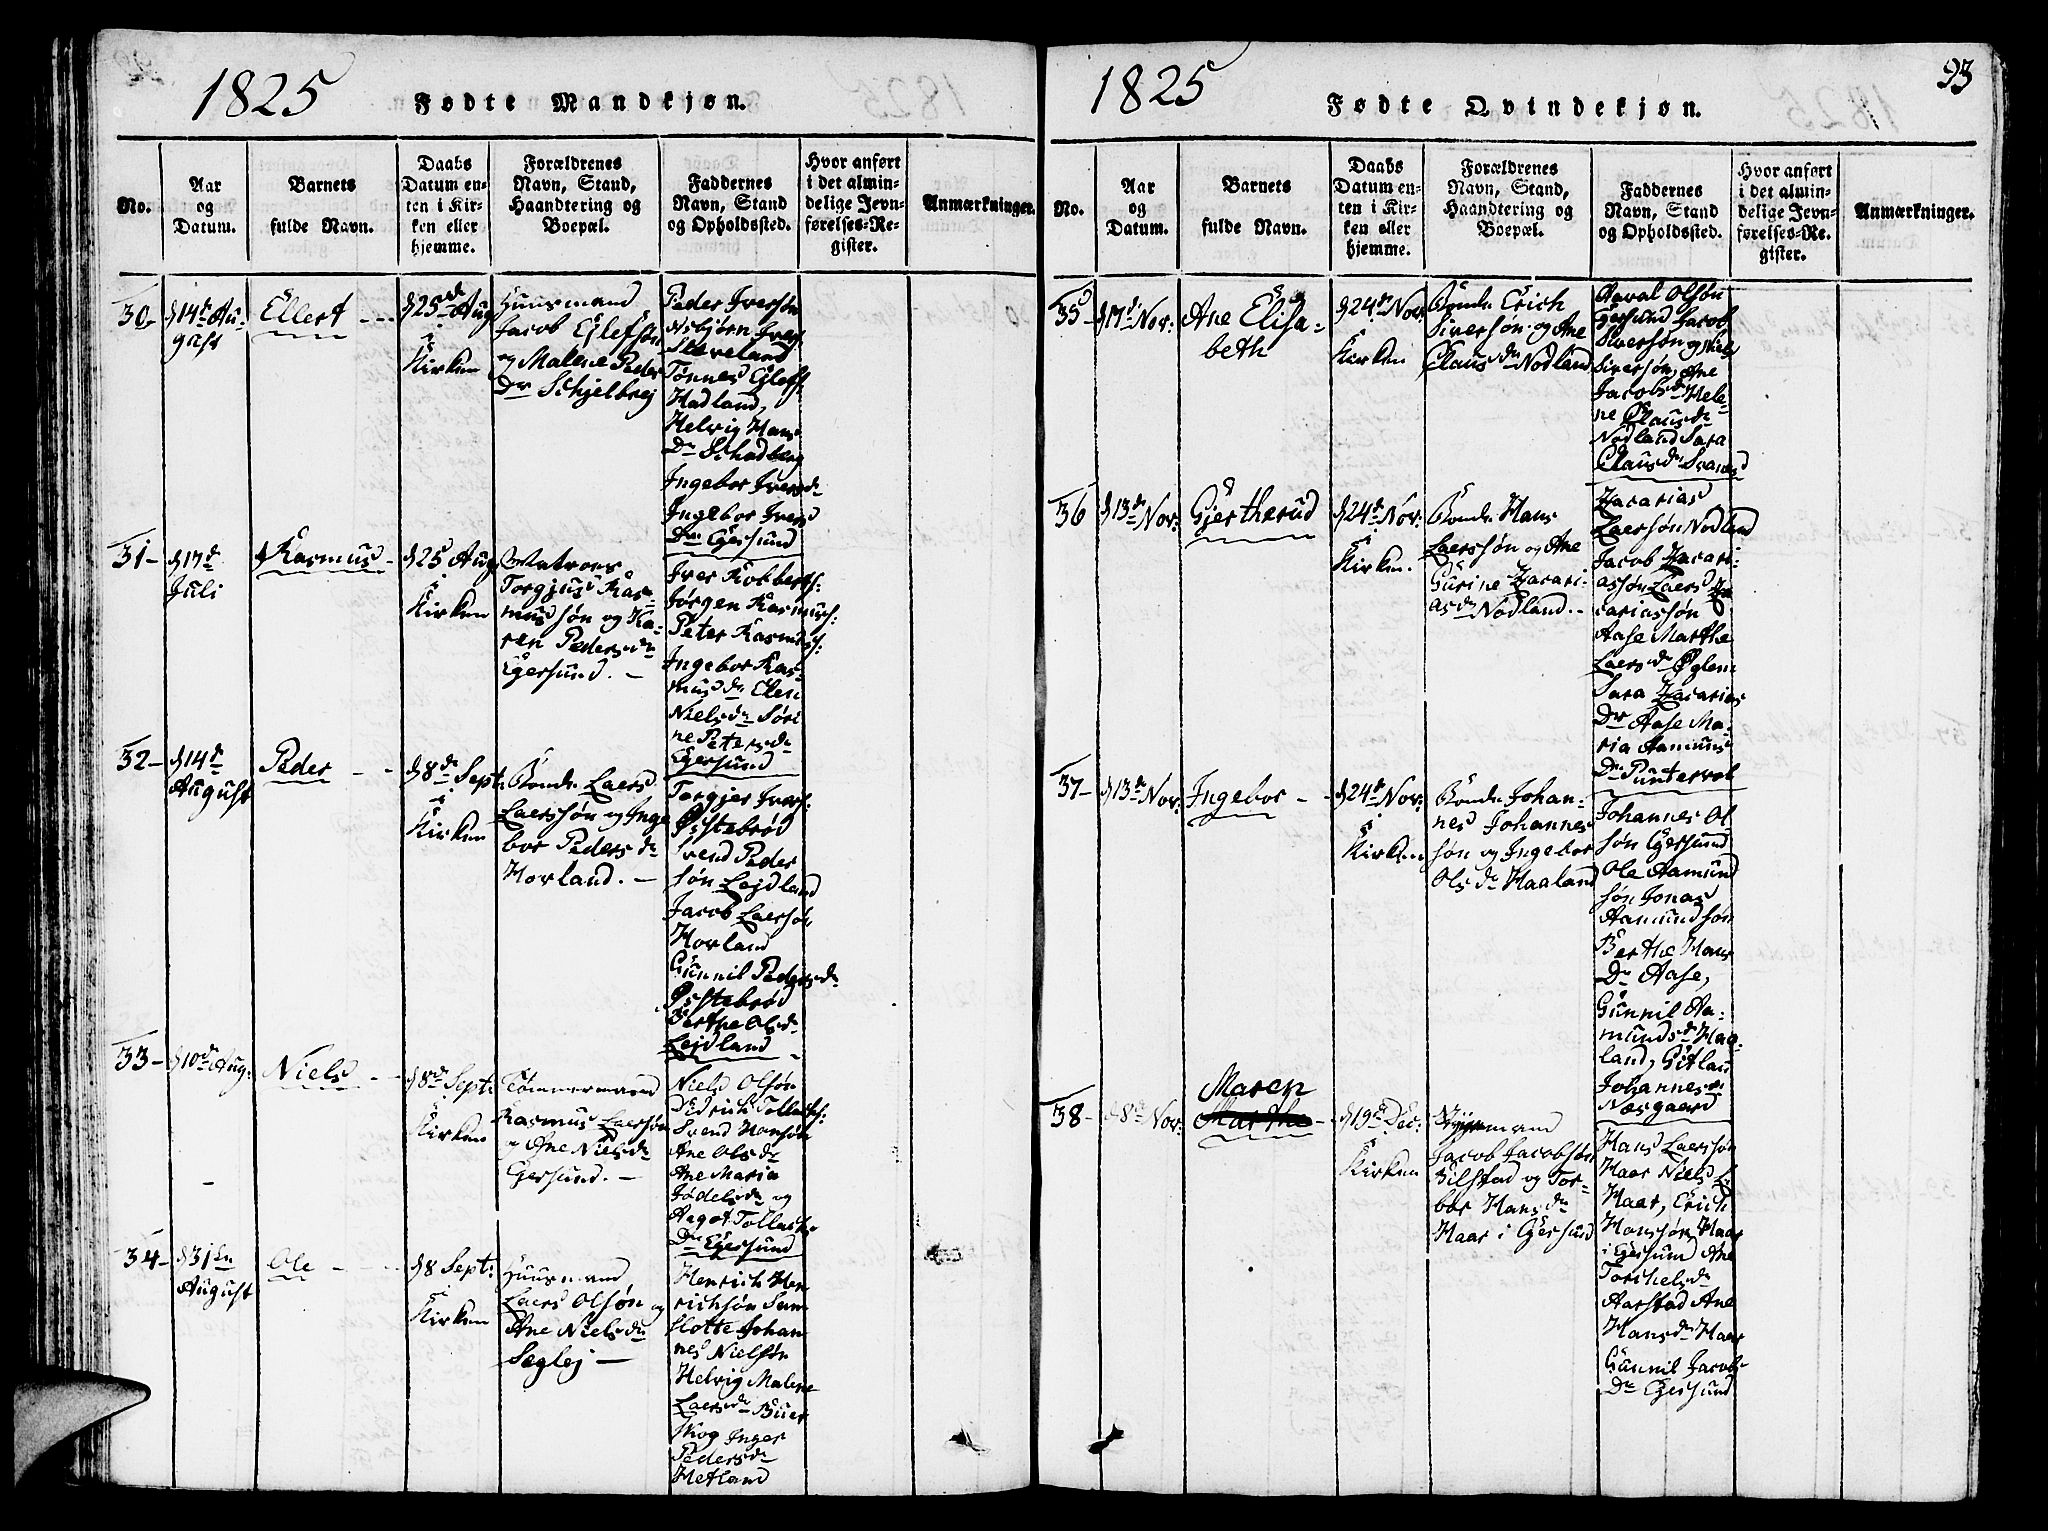 1825
Fødte Mandkjøn.
No.
Aar
og
Datum.
Barnets
fulde Navn.
Daabs
Datum en-
ten i Kir-
ken eller
hjemme.
Forældrenes
Navn, Stand,
Haandtering og
Boepæl.
Faddernes
Navn, Stand
og Opholdssted.
Hvor anført
i det almin-
delige Jevn-
førelses-Re-
gister.
Anmærkninger.
30-
d 14de Au-
gust
Ellert
d 25de Aug
i
Kirken
Huusmand
Jacob Ejlefsøn
og Malene Peder
Dr Schjelbrej
Peder Iversøn
Asbjørn Ivers
Sleveland
Tønnes Ejlefs:
Hadland,
Helvig Hans
Dr Schadberg
Ingebor Ivers dr
Ingebor Ivers
Dr Egersund
31-
d 17de
Juli
Rasmus
d 25 Aug
i
Kirken
Matros
Torgjus Ras-
mussøn og Ka-
ren Peders dr
Egersund. -
Iver Robberts:
Jørgen Rasmus:
Peter Rasmus:
Ingebor Ras-
mus dr Elen
Niels dr Søri
ne Peters dr
Egersund
32-
d 14de
August
Peder
d 8de Sept:
i
Kirken
Bonde Laers
Laerssøn og Inge
bor Peders dr
Horland. -
Torgjer Ivers:
Østebrød
Svend Peder
søn Lejdland
Jacob Laersøn
Horland
Gunnil Peders dr
Østebrød
Berthe Ols dr
Lejdland
33-
d 10de Aug:
Niels
d 8de Sept:
i
Kirken
Tømmermand
Rasmus Laersøn
og Ane Niels dr
Egersund. -
Niels Olsøn
Didrich Tollachs:
Svend Hansøn
Ane Ols dr
Ane Maria
Jødels dr og
Aagot Tollachs
Dr Egersund
34-
d 31te
August
Ole
d 8 Sept:
i
Kirken
Huusmand
Laers Olsøn og
Ane Niels dr
Seglej -
Henrich Hen
richsøn Sem
Slotte Johan
nes Nielsøn
Helvig Malene
Laers dr Buer
skog Inger
Peders dr
Hetland
1825
Fødte Qvindekjøn.
93
No.
Aar
og
Datum.
Barnets
fulde Navn.
Daabs
Datum en-
ten i Kir-
ken eller
hjemme.
Forældrenes
Navn, Stand,
Haandtering og
Boepæl.
Faddernes
Navn, Stand
og Opholdssted.
Hvor anført
i det almin-
delige Jevn-
førelses-Re-
gister.
Anmærkninger.
35-
d 17de Nov:
Ane Elisa-
beth
d 24de Nov
i
Kirken
Bonde Erich
Siversøn og Ane
Claus dr Nodland
Olsøn
Egersund Jacob
Siversøn og Niels
Siversøn, Ane
Jacobs dr Hele-
ne Claus dr
Nodland Sara
Claus dr Svanæs
36
d 13de Nov:
Gjertherud
d 24de Nov:
i
Kirken.
Bonde Hans
Laerssøn og Ane
Gurine Zacari-
as dr Nodland. -
Zacarias
Laersøn Nodland
Jacob Zacari-
assøn Laers Za
cariassøn
Aase Marthe
Laers dr Øglen
Sara Zacarias
Dr Aase Ma-
ria Aamuns
Dr Puntervol
37-
d 13de Nov:
Ingebor
d 24de Nov:
i
Kirken
Bonde Johan-
nes Johannes
søn og Ingebor
Ols dr Haaland
Johannes Ol
søn Egersund
Ole Aamund
søn Jonas
Aamundsøn
Berthe Hans
Dr Aase,
Gunnil Aa-
munds dr Haa-
land, Gitlau
Johannes dr
Næsgaard
38-
d 8de Nov:
Maren
Marthe
d 19de Dec:
i
Kirken
Jacob Jacobsøn
Gilstad og Tor-
bor Hans dr
Haar i Egersund
Hans Laersøn
Haar Niels L
Haar, Erich
Hansøn Haar
i Egersund Ane
Torchels dr
Aarstad Ane
Hans dr Haar
Gunnil Jacobs
Dr Egersund